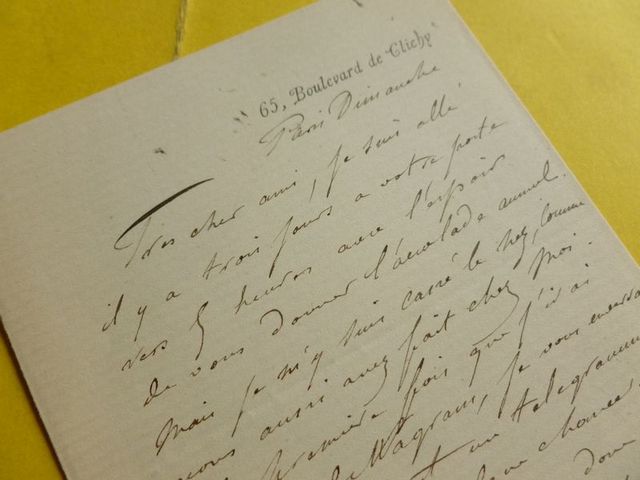 65, Boulevard de Clichy
Paris Dimanche
Tres cher ami, je suis allé
il y a trois jours a votre porte
vers 5 heures avec l'espoir
de vous donner l'accolade annuel.
Mais je m'y suis cassé le nez, comme
vous aussi avez fait chez moi.
première fois que j'irai
Wagram, je vous enverrai
un telegramme
chance,
donc